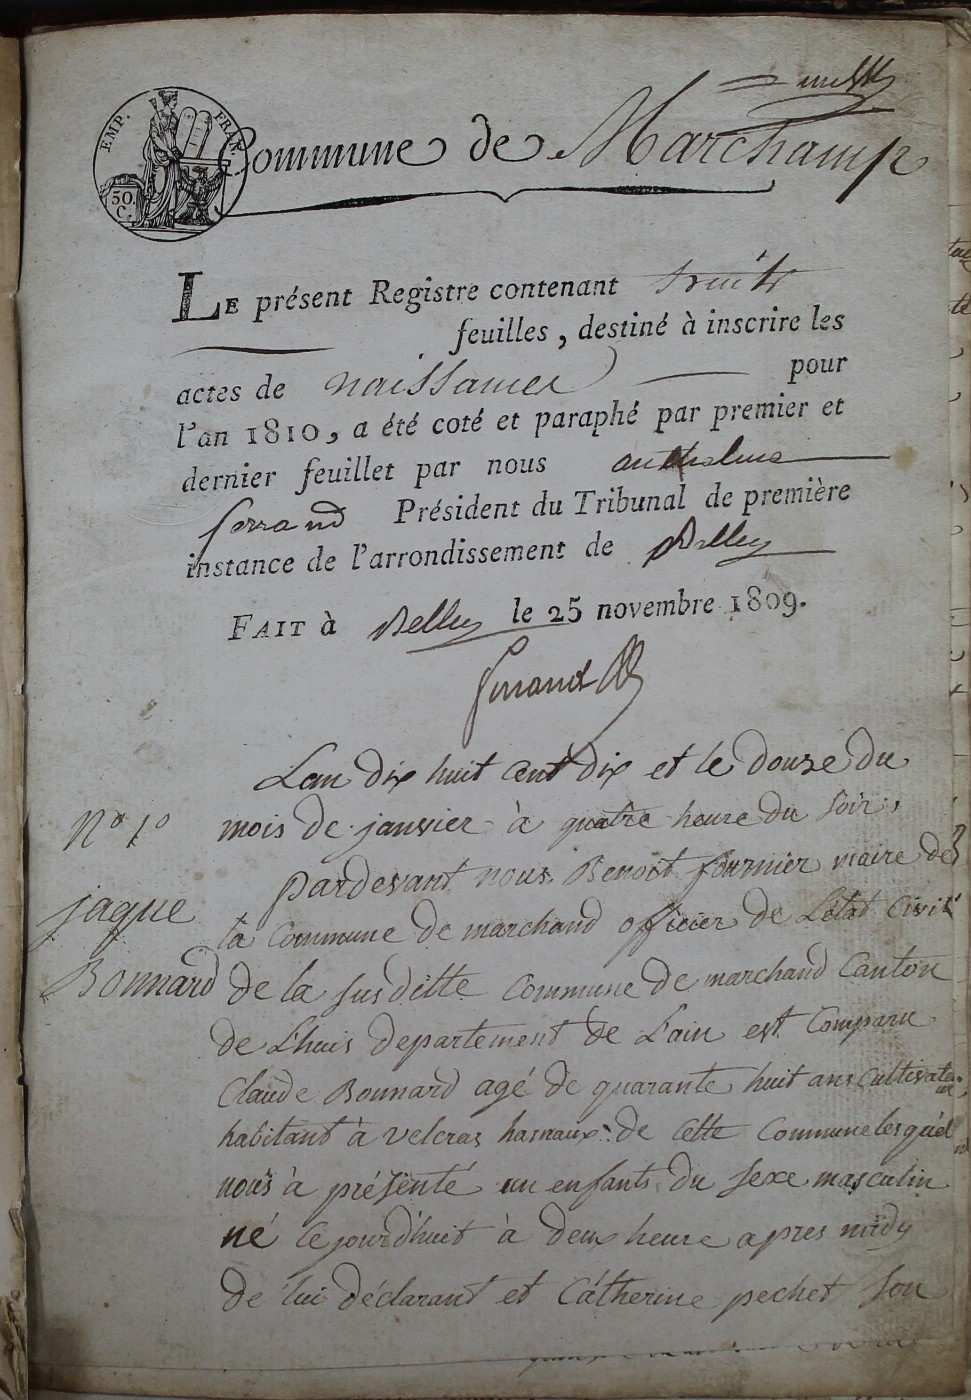 EMP. FRAN.
50. C.
Commune de Marchamp
Le présent Registre contenant
feuilles, destiné à inscrire les
actes de naissances pour
l'an 1810, a été coté et paraphé par premier et
dernier feuillet par nous anthelme
ferrand Président du Tribunal de première
instance de l'arrondissement de Belley
Fait à Belley le 25 novembre 1809.
Lan dix huit cent dix et le douze du
mois de janvier à quatre heure du soir,
N° 1°
pardevant nous Benoit fournier maire de
la Commune de marchand officier de L'état Civil
jaque
Bonnard
de la susditte Commune de marchand Canton
de Lhuis departement de L'ain est Comparu
Claude Bonnard agé de quarante huit ans Cultivateur
habitant à velcras hamaux de Cette Commune lesquel
nous à présenté un enfants du sexe masculin
né Cejourd'huit à deux heure apres midy
de lui déclarant et Cátherine pechet son